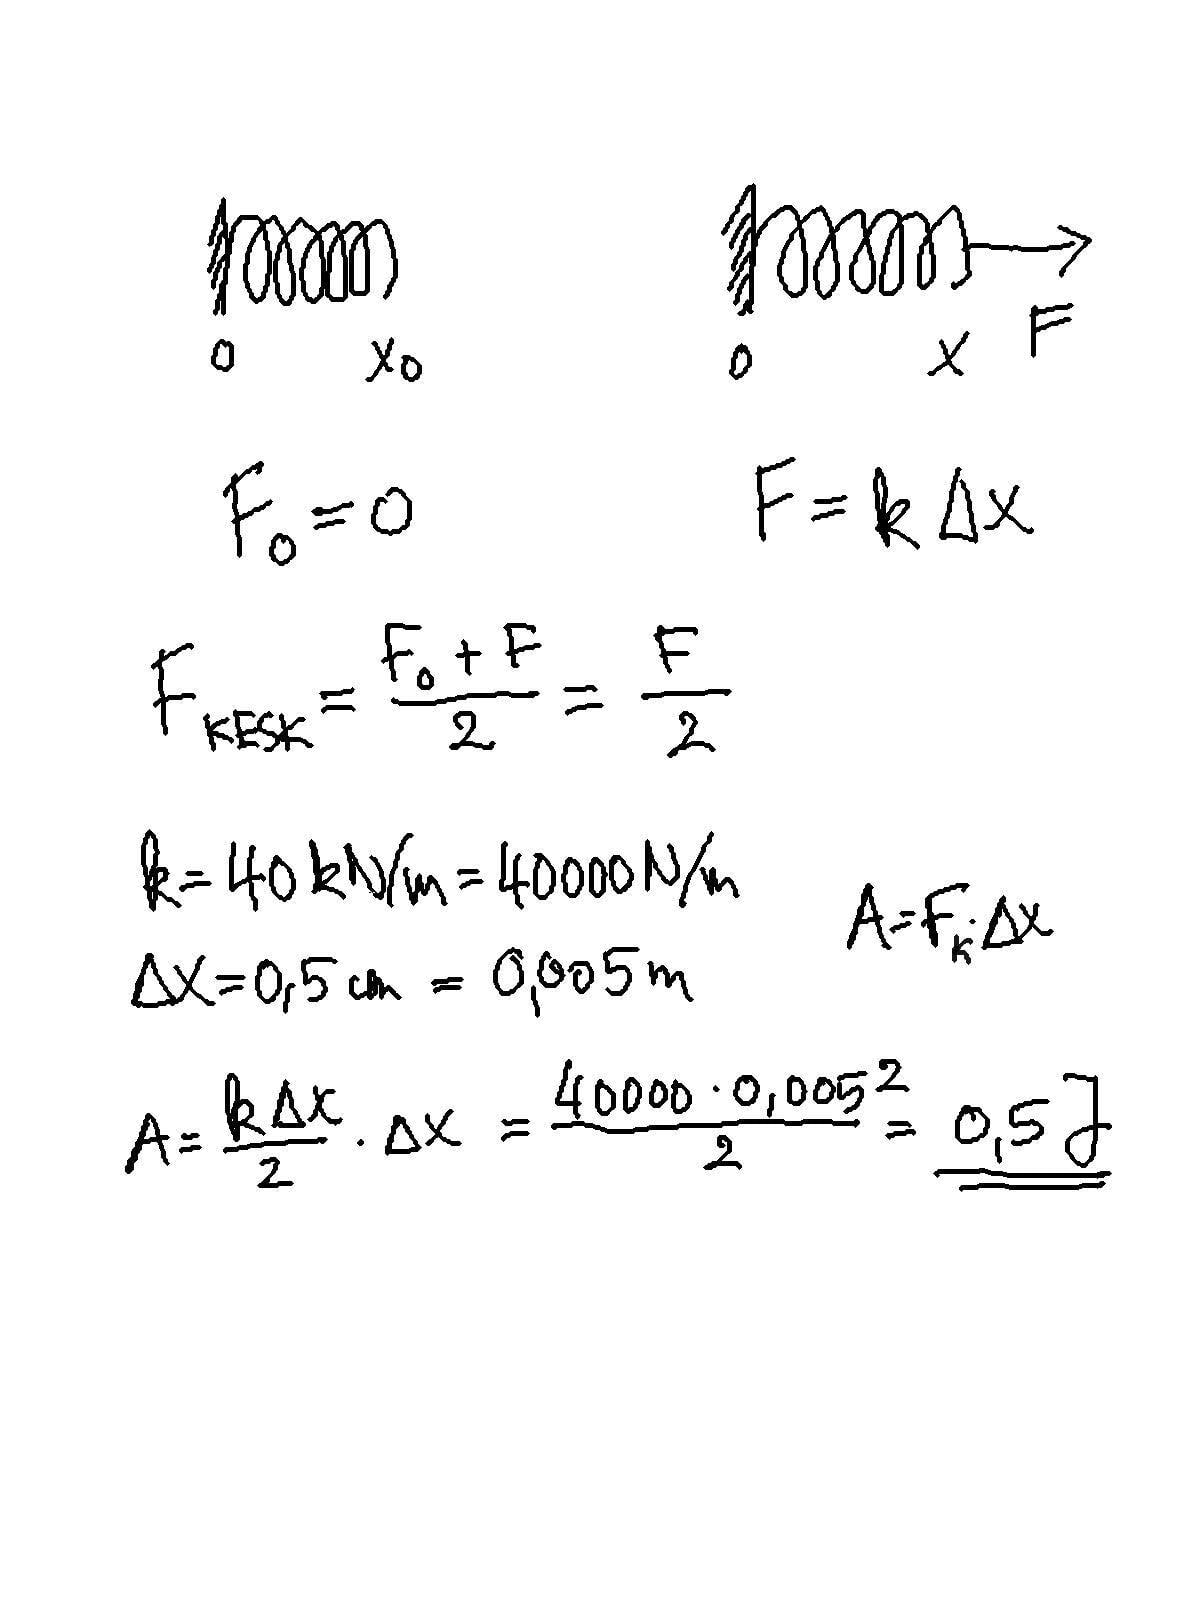 0 x₀ 0 x F
F₀ = 0 F = k Δx
F_KESK = (F₀ + F)/2 = F/2
k = 40 kN/m = 40000 N/m
A = F_K · Δx
Δx = 0,5 cm = 0,005 m
A = (kΔx)/2 · Δx = (40000 · 0,005²)/2 = 0,5 J